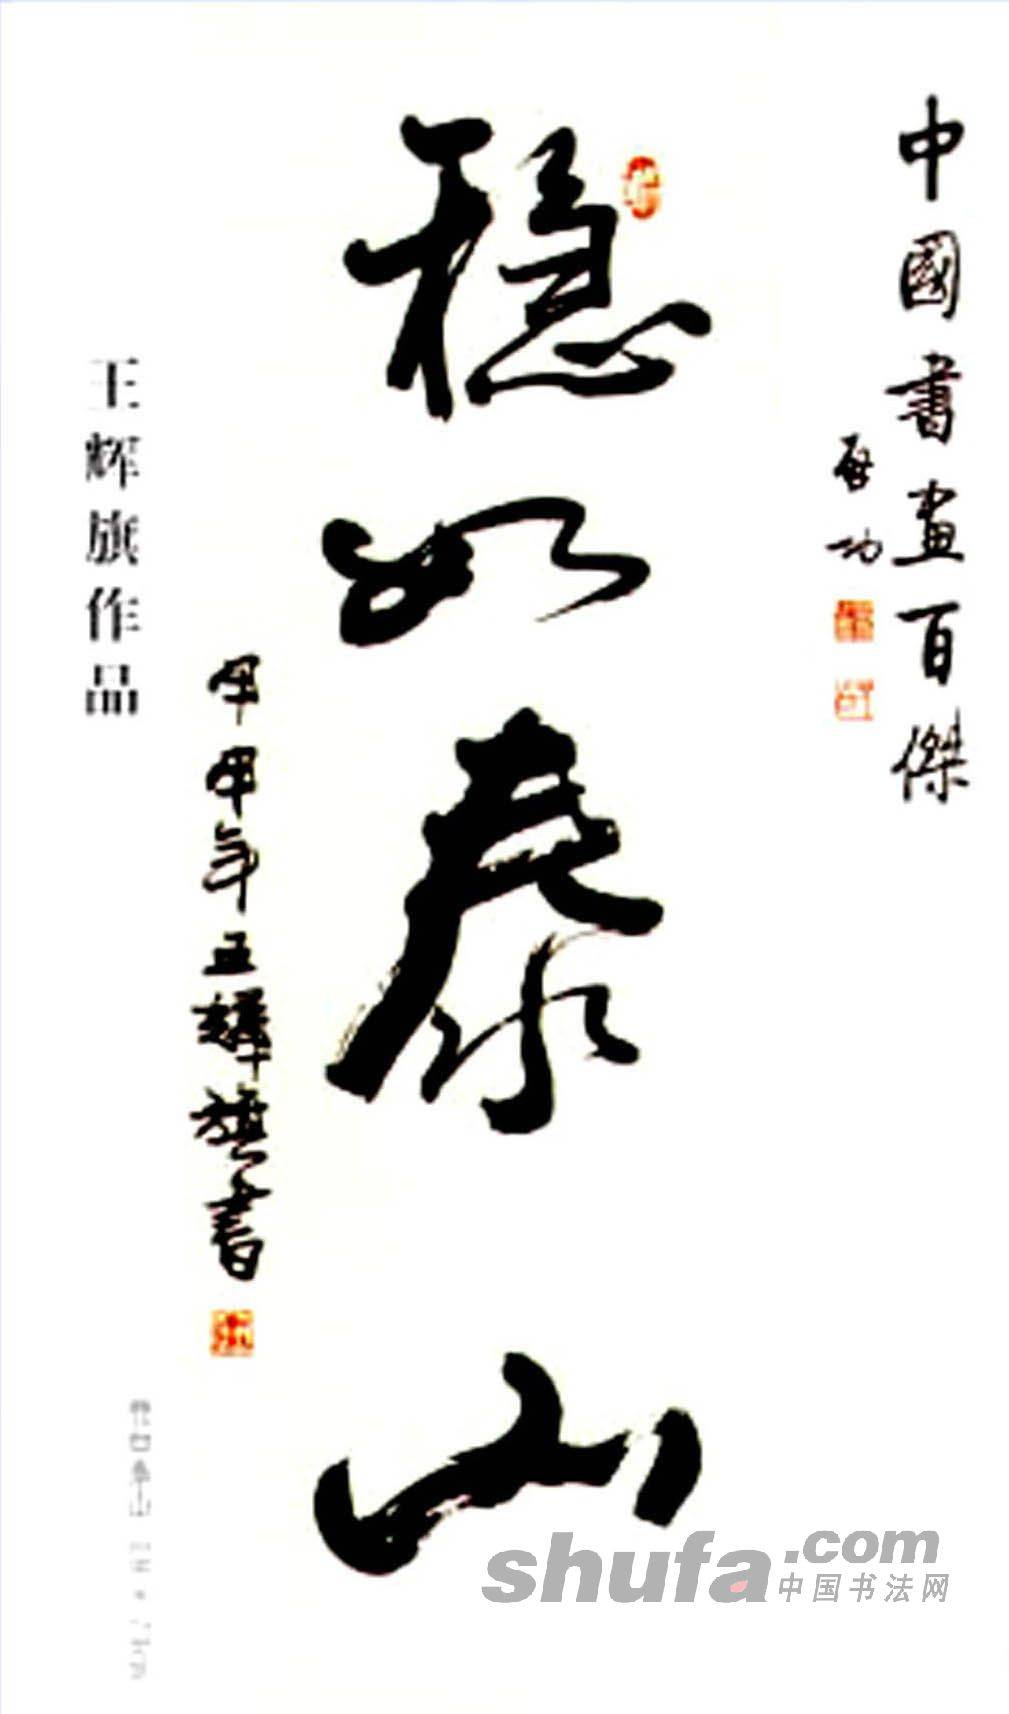 中國書畫百傑
啓功
穩如泰山
甲申年王輝旗書
王辉旗作品
shufa.com
中国书法网